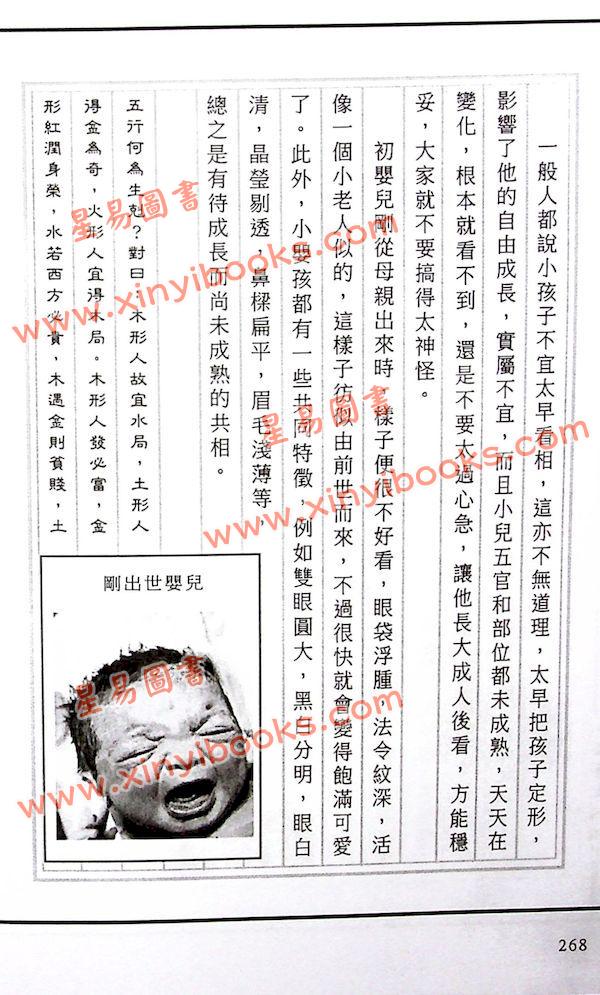 一般人都說小孩子不宜太早看相，這亦不無道理，太早把孩子定形，
影響了他的自由成長，實屬不宜，而且小兒五官和部位都未成熟，天天在
變化，根本就看不到，還是不要太過心急，讓他長大成人後看，方能穩
妥，大家就不要搞得太神怪。
初嬰兒剛從母親出來時，樣子便很不好看，眼袋浮腫，法令紋深，活
像一個小老人似的，這樣子彷似由前世而來，不過很快就會變得飽滿可愛
了。此外，小嬰孩都有一些共同特徵，例如雙眼圓大，黑白分明，眼白
清，晶瑩剔透，鼻樑扁平，眉毛淺薄等，
總之是有待成長而尚未成熟的共相。
五行何為生剋？對曰：木形人故宜水局，土形人
得金為奇，火形人宜得木局。木形人發必富，金
形紅潤身榮，水若西方必貴，木遇金則貧賤，土
剛出世嬰兒
268
星易圖書
www.xinyibooks.com
星易圖書
www.xinyibooks.com
星易圖書
www.xinyibooks.com